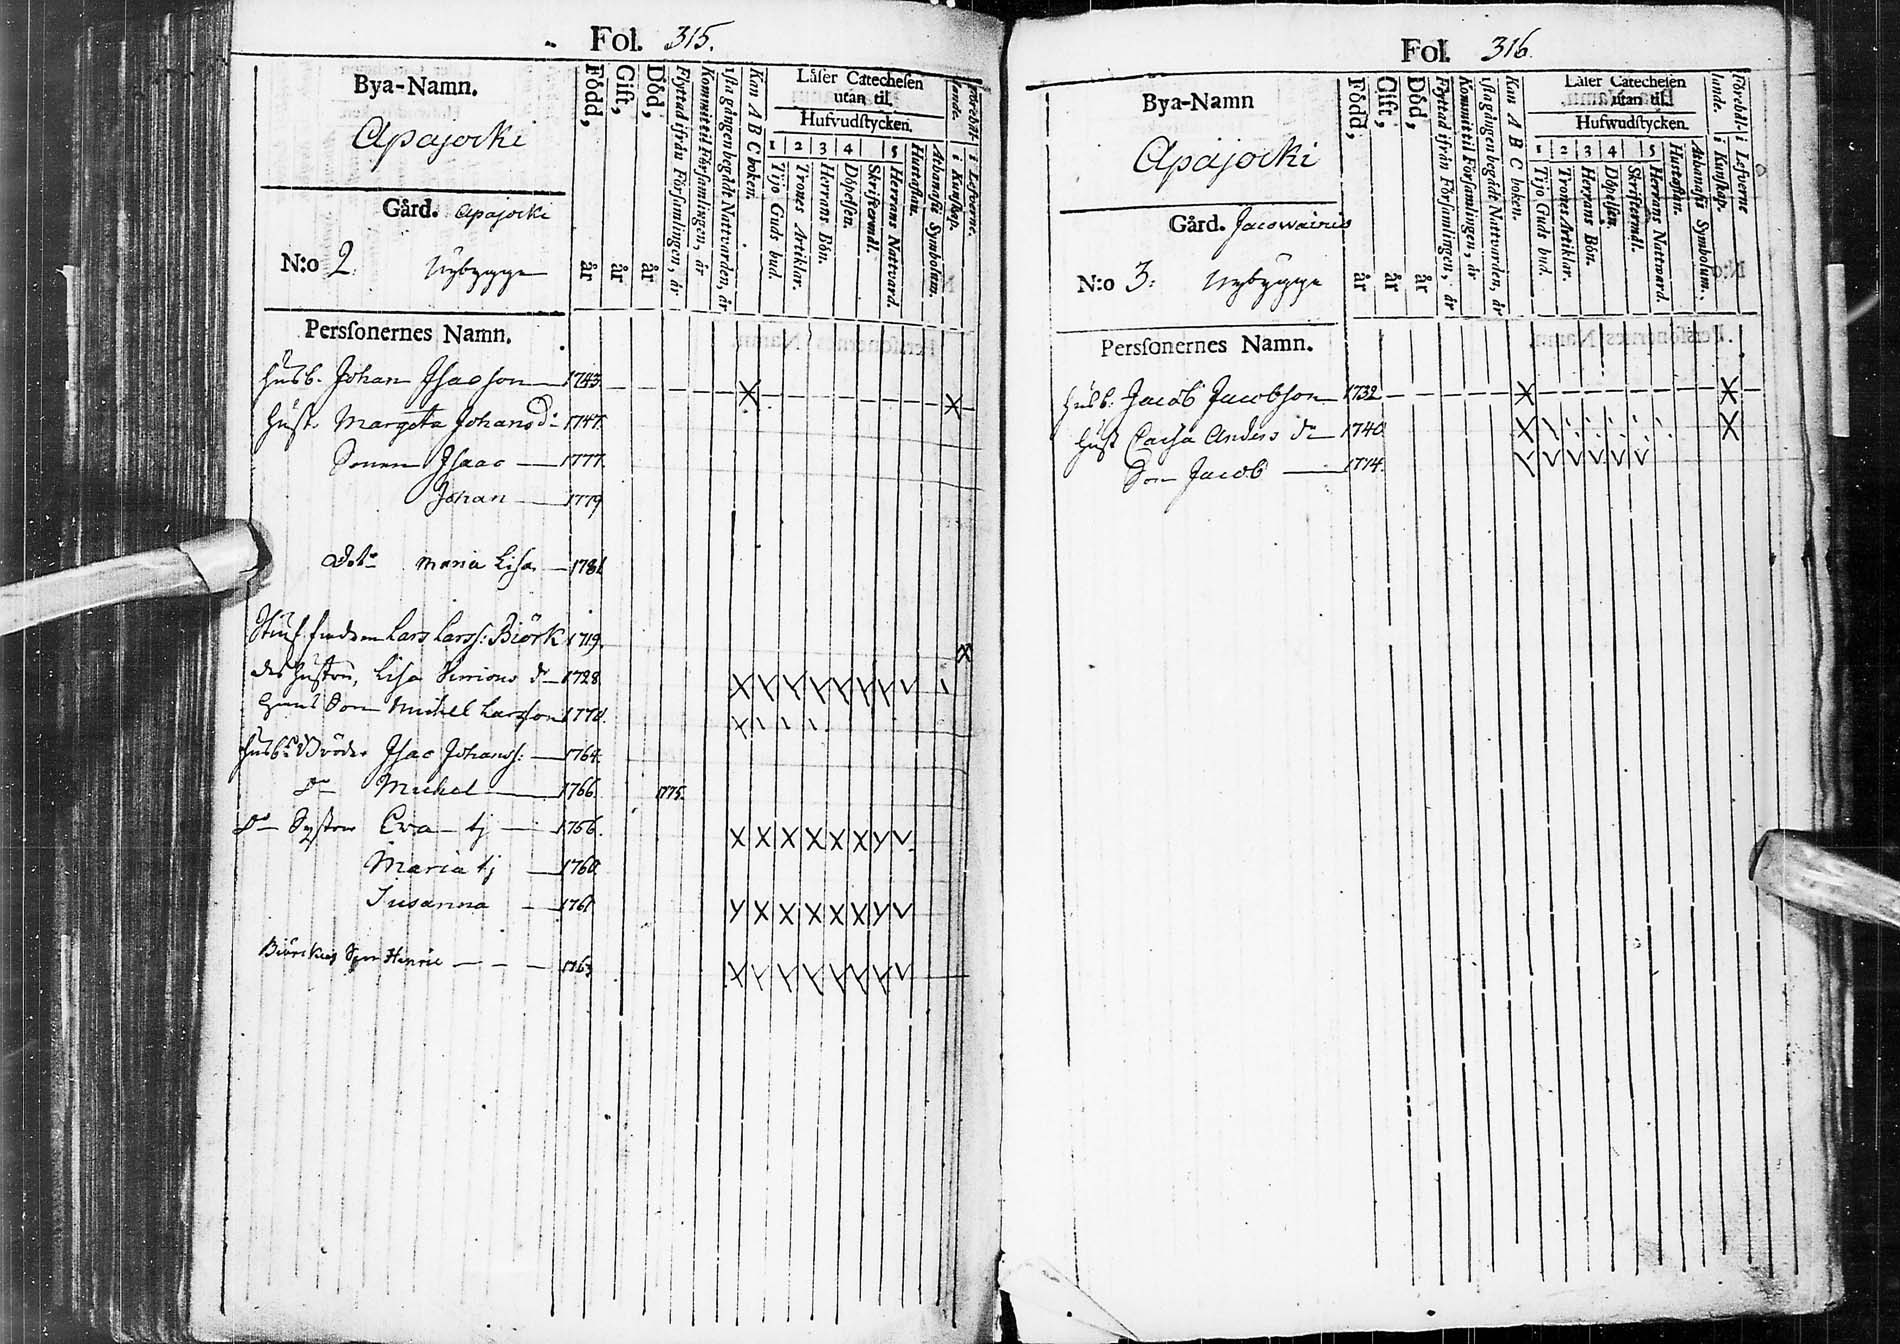 Fol. 315.
Bya-Namn.
Apajocki
Gård. Apajocki
N:o 2. Nybygge
Persſonernes Namn.
Född, år
Gift, år
Död, år
Flyttad ifrån Förſamlingen, år
Kommit til Förſamlingen, år
1ſta gången begådt Nattvarden, år
Kan A B C boken.
Läſer Catecheſen
utan til.
Hufvudſtycken.
1 2 3 4 5
Tijo Guds bud.
Trones Artiklar.
Herrans Bön.
Döpelſen.
Skriftermål.
Herrans Nattvard.
Huſtaflan.
Athanaſii Symbolum.
i Kunſkap.
i Lefverne.
Husb. Johan Iſacſon 1743
Huſt. Margeta Johansd:r 1747
Sonen Iſaac 1777
Johan 1779
Maria Liſa 1781
Lars Larsſ: Biörk 1719
Liſa Simons d:r 1728
Son Michel Larsſon 1770
Husb:s Broder Iſac Johansſ: 1764
D:o Michel 1766 1775
D:o Syſter Eva tj 1756
Maria tj 1760
Suſanna 1761
Son Henric 1763
Fol. 316
Bya-Namn
Apajocki
Gård. Jacowainio
N:o 3: Nybygge
Persſonernes Namn.
Född, år
Gift, år
Död, år
Flyttad ifrån Förſamlingen, år
Kommit til Förſamlingen, år
1ſta gången begådt Nattvarden, år
Kan A B C boken.
Läſer Catecheſen
utan til.
Hufwudſtycken.
1 2 3 4 5
Tijo Guds bud.
Trones Artiklar.
Herrans Bön.
Döpelſen.
Skriftermål.
Herrans Nattward.
Huſtaflan.
Athanaſii Symbolum.
i Kunſkap.
i Lefverne
Husb. Jacob Jacobſon 1732
Huſt Caiſa Anders d:r 1740
Son Jacob 1774